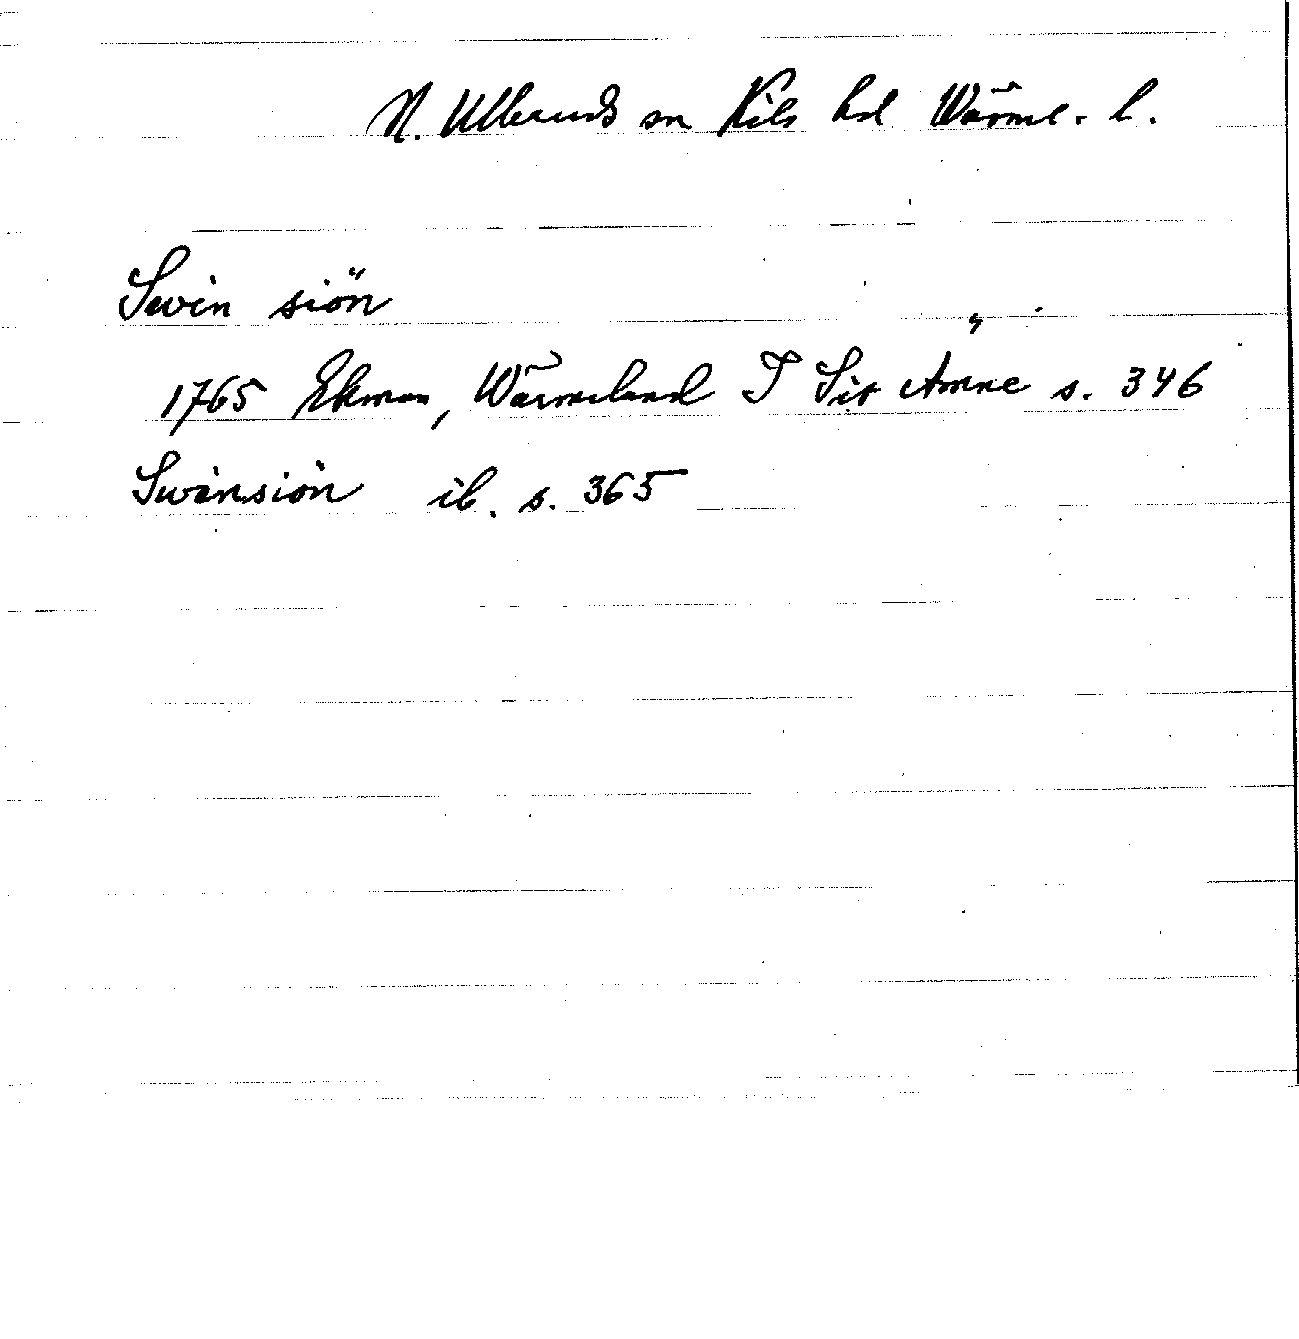 N. Ulleruds sn Kils hd Värml. l.
Swin siön
1765 Ekman, Wärmeland I Sit Ämne s. 346
Swinsiön ib. s. 365